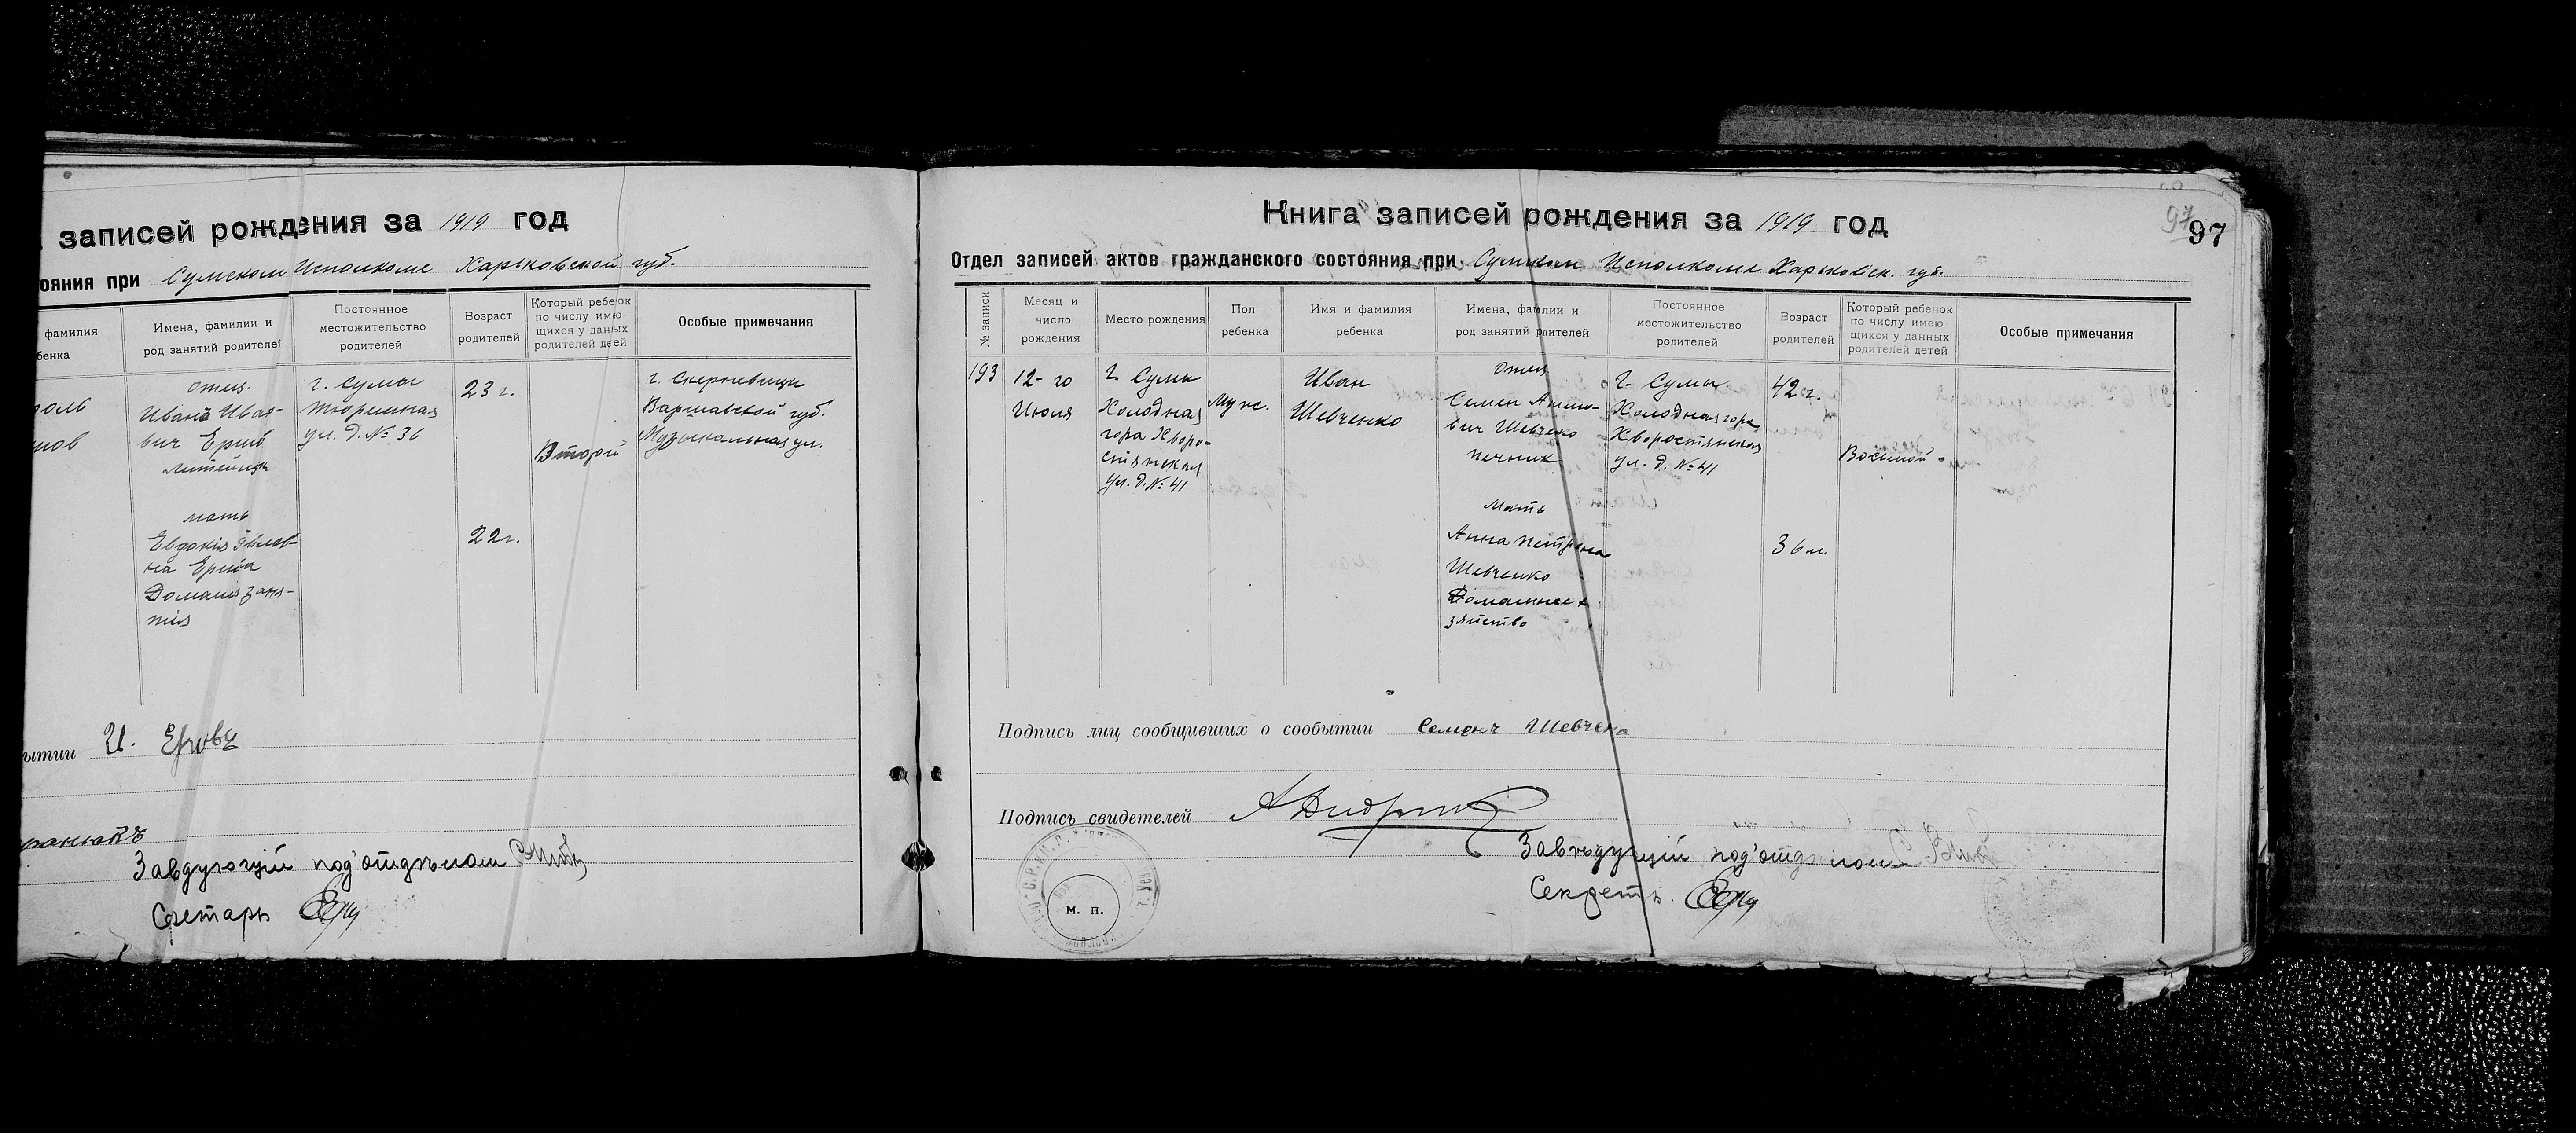 записей рождения за 1919 год
ояния при Сумском Исполкоме Харьковской губ.
фамилия
бенка
Имена, фамилии и
род занятий родителей
Постоянное
местожительство
родителей
Возраст
родителей
Который ребенок
по числу имею-
щихся у данных
родителей детей
Особые примечания
отец
Иванъ Ивано-
вич
литейщик
мать
Евдокия
на
Домашн. заня-
тия
г. Сумы
Тюремная
ул. д. № 36
23 г.
22 г.
Второй
г. Скерневицы
Варшавской губ.
Музыкальная ул.
ытии И.
Завдующій под'отдѣлом
Секретарь
Книга записей рождения за 1919 год
97
97
Отдел записей актов гражданского состояния при Сумском Исполкоме Харьковск. губ.
№ записи
Месяц и
число
рождения
Место рождения
Пол
ребенка
Имя и фамилия
ребенка
Имена, фамлии и
род занятий родителей
Постоянное
местожительство
родителей
Возраст
родителей
Который ребенок
по числу имею-
щихся у данных
родителей детей
Особые примечания
193
12-го
Июля
г. Сумы
Холодная
гора Хворо-
стянская
ул. д. № 41
Муж.
Иван
Шевченко
отец
Семен
вич Шевченко
печник
мать
Анна Петровна
Шевченко
Домашнее х.
зяйство
г. Сумы
Холодная гора
Хворостянская
ул. д. № 41
42 г.
36 л.
Восьмой
Подпись лиц сообщивших о сообытии Семенъ Шевченко
Подпись свидетелей
Завѣдующій под'отделом
Секретъ.
м. п.